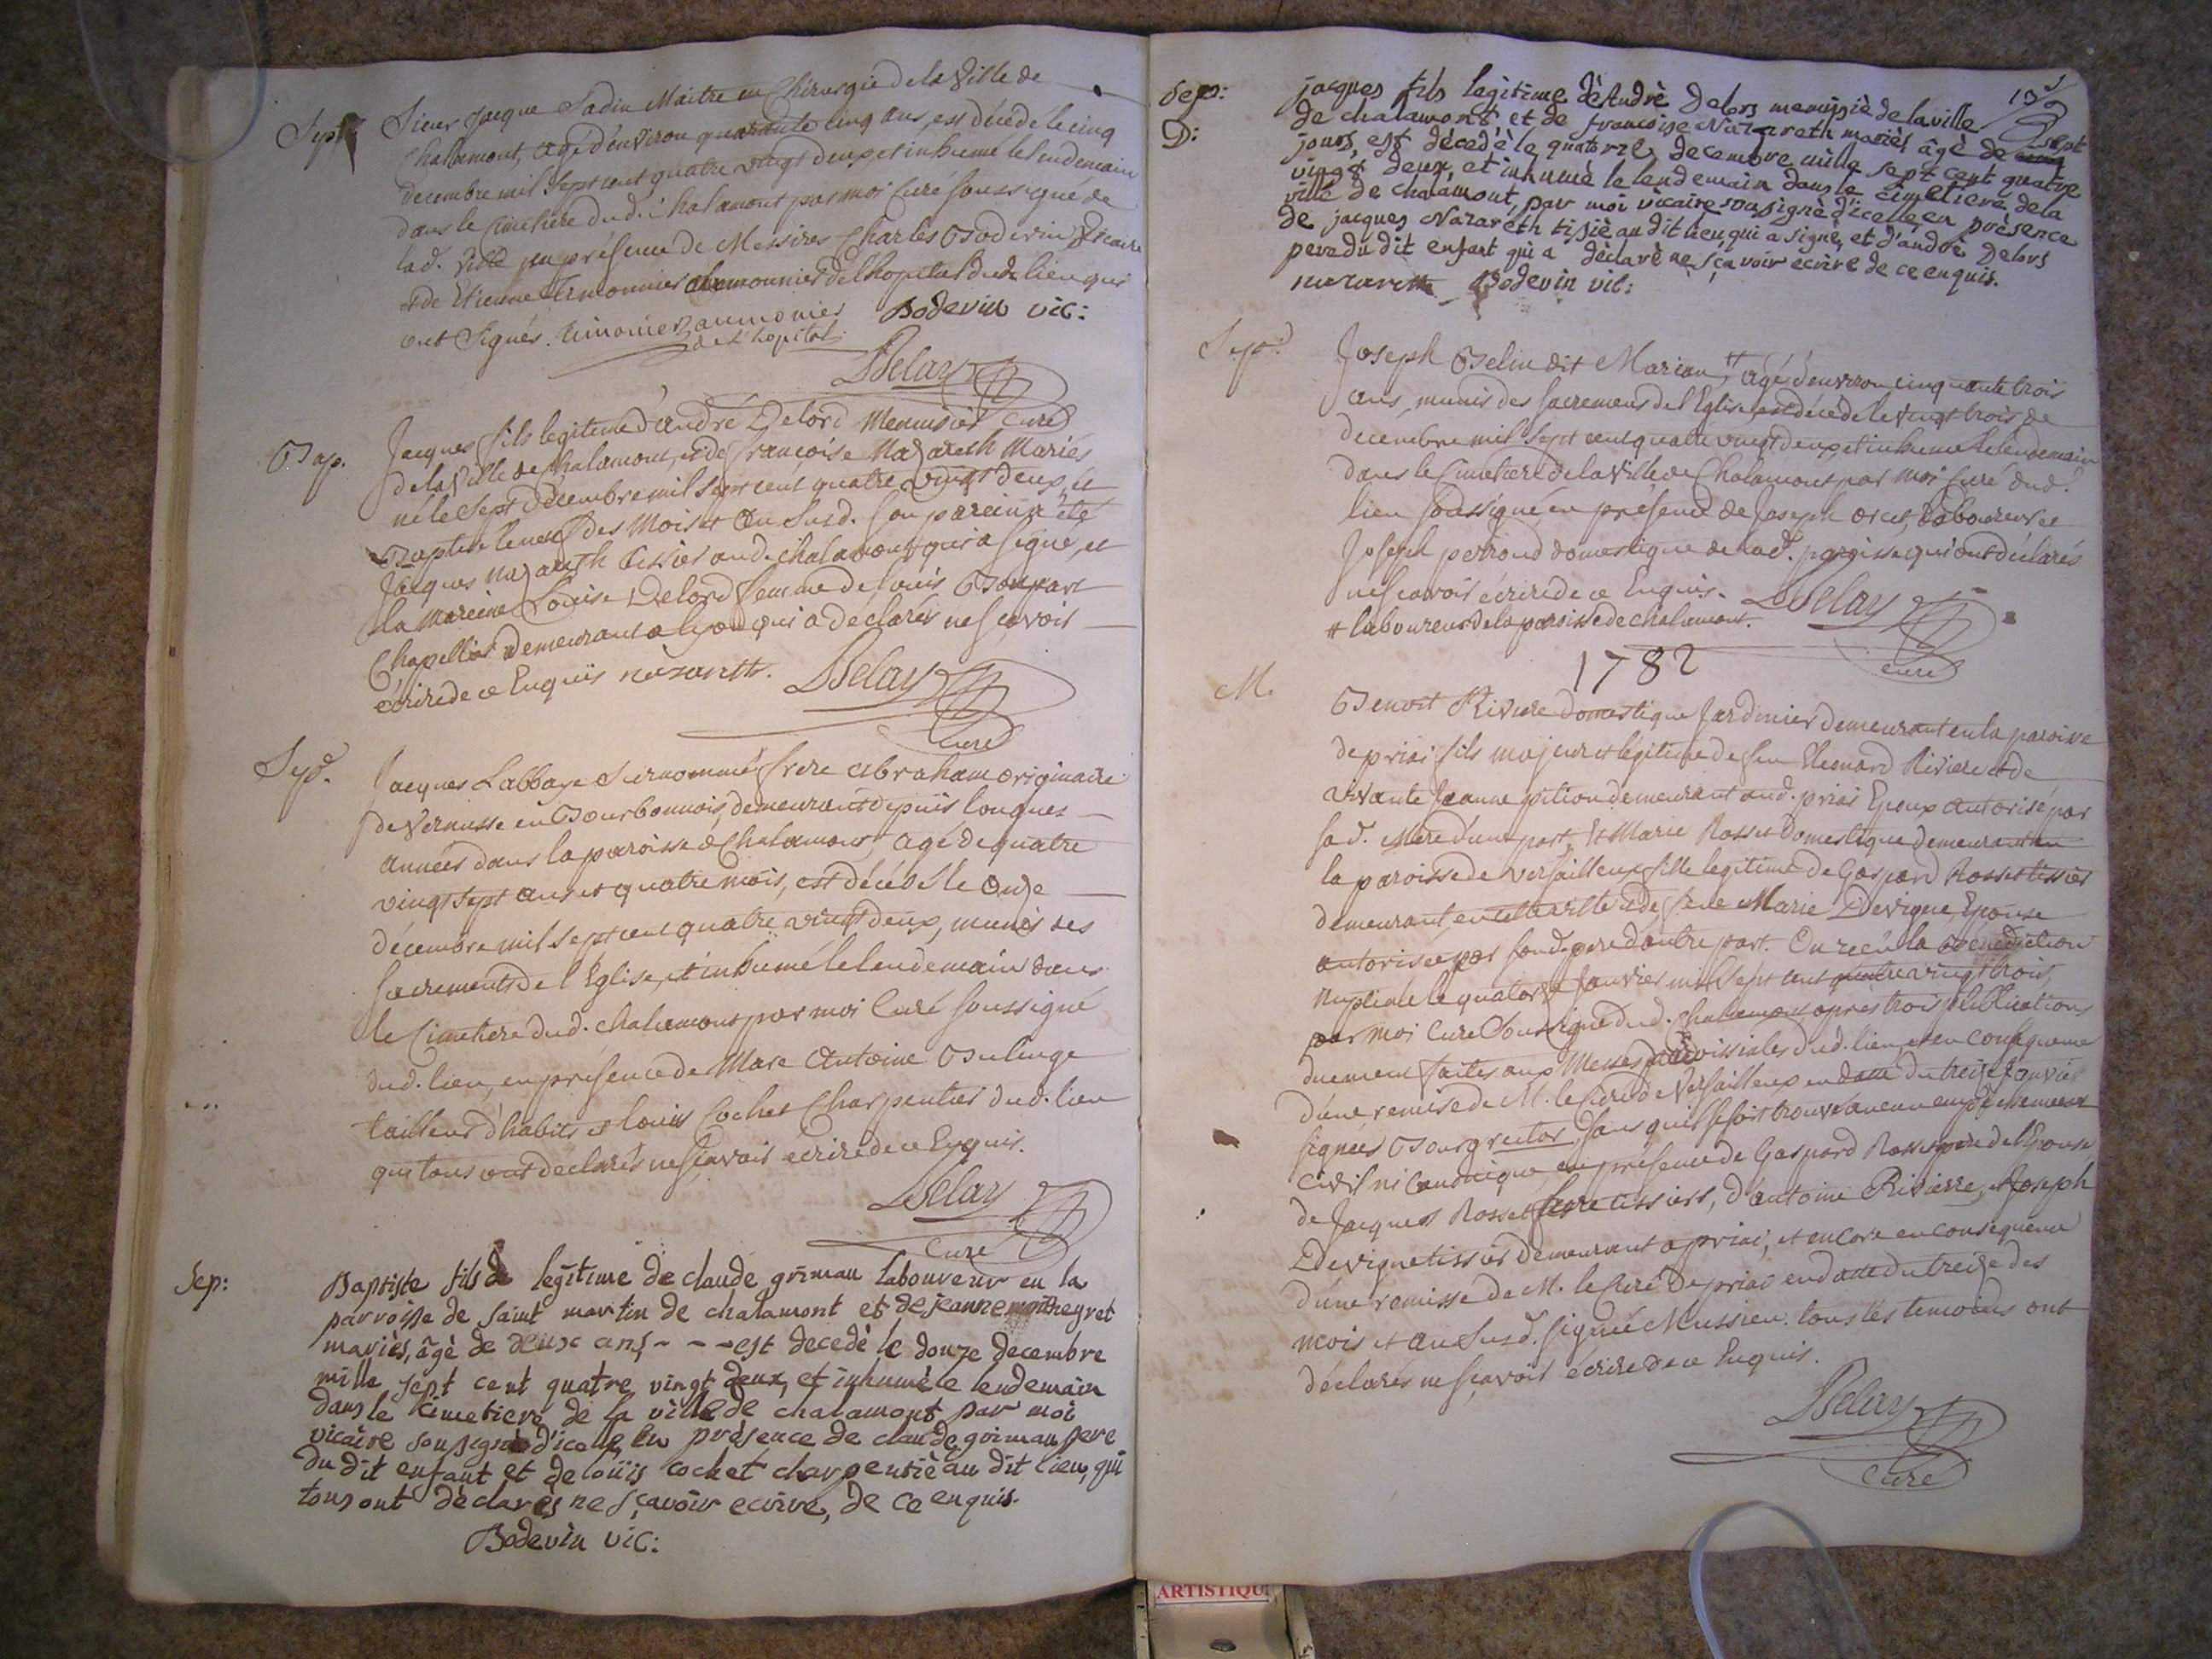 Sept.
Sieur Jacque Sadin Maitre en Chirurgie de la Ville de
Chalamont, agé d'environ quarante cinq ans, est décédé le cinq
decembre mil sept cent quatre vingt deux et inhumé le lendemain
dans le Cimetiere dud. Chalamont par moi Curé soussigné de
lad. Ville en présence de Messires Charles Bodevin Vicaire
et de Etienne Limonnier Aumonnier de l'hopital dud. lieu qui
ont signés. Limonier aumonier Bodevin vic:
de L'hopital.
Delay
Curé
Bap.
Jacques fils legitime d'andré Delord Menuisier
de la Ville de Chalamont, et de françoise Nazareth Mariés
né le sept décembre mil sept cent quatre vingt deux, et
Baptisé le neuf des Mois et an susd. son parein a été
Jacques Nazareth tissier aud. chalamont qui a signé, et
la Mareine Louise Delord femme de Louis Bonpart
Chapellier demeurant a lyon qui a déclarés ne scavoir
écrire de ce Enquis nazareth. Delay
Curé
Sep.
Jacques Labbaye Surnommé frere abraham originaire
de Vernusse en Bourbonnois, demeurant depuis longues
années dans la paroisse de Chalamont, agé de quatre
vingt sept ans et quatre mois, est décédé le onze
décembre mil sept cent quatre vingt deux, munis des
sacrements de l'Eglise, et inhumé le lendemain dans
le Cimetiere dud. chalamont par moi Curé soussigné
dud. lieu, en présence de Marc Antoine Bulinge
tailleur d'habits et louis Cochet Charpentier dud. lieu
qui tous ont déclarés ne scavoir écrire de ce Enquis.
Delay
Curé
Sep:
Baptiste fils legitime de claude griman laboureur en la
parroisse de saint martin de chalamont et de jeanne montheyret
mariès, âgè de deux ans - - - est decedè le douze decembre
mille sept cent quatre vingt deux, et inhumè le lendemain
dans le cimetiere de la ville de chalamont par moi
vicaire sousignè d'icelle, en présence de claude griman pere
du dit enfant et de loüis cochet charpentiè au dit lieu, qui
tous ont déclarès ne sçavoir ecrire, de ce enquis.
Bodevin vic:
Sep:
D:
jacques fils legitime d'Andrè Delors menuisiè de la ville
de chalamont et de francoise Nazareth mariès âgè de cinq sept
jours, est décedè le quatorze decembre mille sept cent quatre
vingt deux, et inhumè le lendemain dans le cimetiere de la
ville de chalamont, par moi vicaire sousignè d'icelle, en prèsence
de jacques Nazareth tisiè au dit lieu, qui a signè, et d'andrè Delors
pere du dit enfant qui a dèclarè ne sçavoir ecrire de ce enquis.
nazareth Bodevin vic:
Sep.
Joseph Belin dit Marion # agé d'environ cinquante trois
ans, munis des sacremens de l'Eglise, est décédé le vingt trois de
decembre mil sept cent quatre vingt deux et inhumé le lendemain
dans le Cimetiere de la Ville de Chalamont par moi Curé dud.
lieu soussigné, en présence de Joseph laboureur et
Joseph perroud domestique de lad. paroisse qui ont déclarés
ne scavoir écrire de ce Enquis. Delay
# laboureur de la paroisse de chalamont.
Curé
1782
M.
Benoit Riviere domestique Jardinier demeurant en la paroisse
de priai fils majeur et légitime de feu Leonard Riviere et de
vivante Jeanne pition demeurant aud. priai Epoux autorisé par
sad. Mere d'une part, Et Marie Rosset domestique demeurant en
la paroisse de versailleux fille legitime de Gaspard Rosset tissier
demeurant et de feue Marie Devigne, Epouse
autorisée par sond. pere d'autre part. On reçu la Bénédiction
Nuptiale le quatorze Janvier mil sept cent quatre vingt trois,
par moi Curé Soussigné dud. Chalamont après trois publications
duement faites aux Messes paroissiales dud. lieu, et en consequence
d'une remise de M. le Curé de Versailleux en datte du treize Janvier
signée Bourg rector, sans qu'il se soit trouvé aucun empechement
Civil ni Canonique, en présence de Gaspard Rosset père de l'Epouse
de Jacques Rosset frere tissiers, d'antoine Rivierre, et Joseph
Devigne tissier demeurant a priai, et encore en consequence
d'une remisse de M. le Curé de priai en datte du treize des
mois et an susd. signée Mussieu. tous les temoins ont
déclarés ne scavoir écrire de ce Enquis.
Delay
Curé
ARTISTIQU